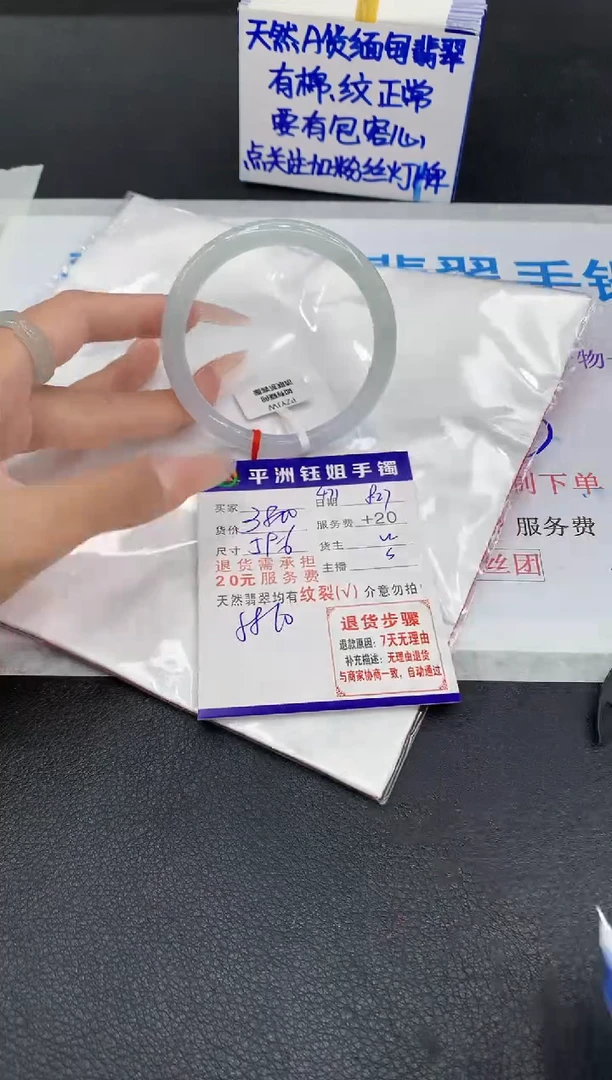 天然A货缅甸翡翠
有棉、纹正常
要有包容心,
点关注加粉丝灯牌
翡翠手镯
物
制下单
服务费
丝团
平洲钰姐手镯
买家
日期
货价 3800
服务费 +20
尺寸
货主
退货需承担
20元服务费
主播
天然翡翠均有纹裂(√)介意勿拍
退货步骤
退款原因:7天无理由
补充描述:无理由退货
与商家协商一致,自动通过